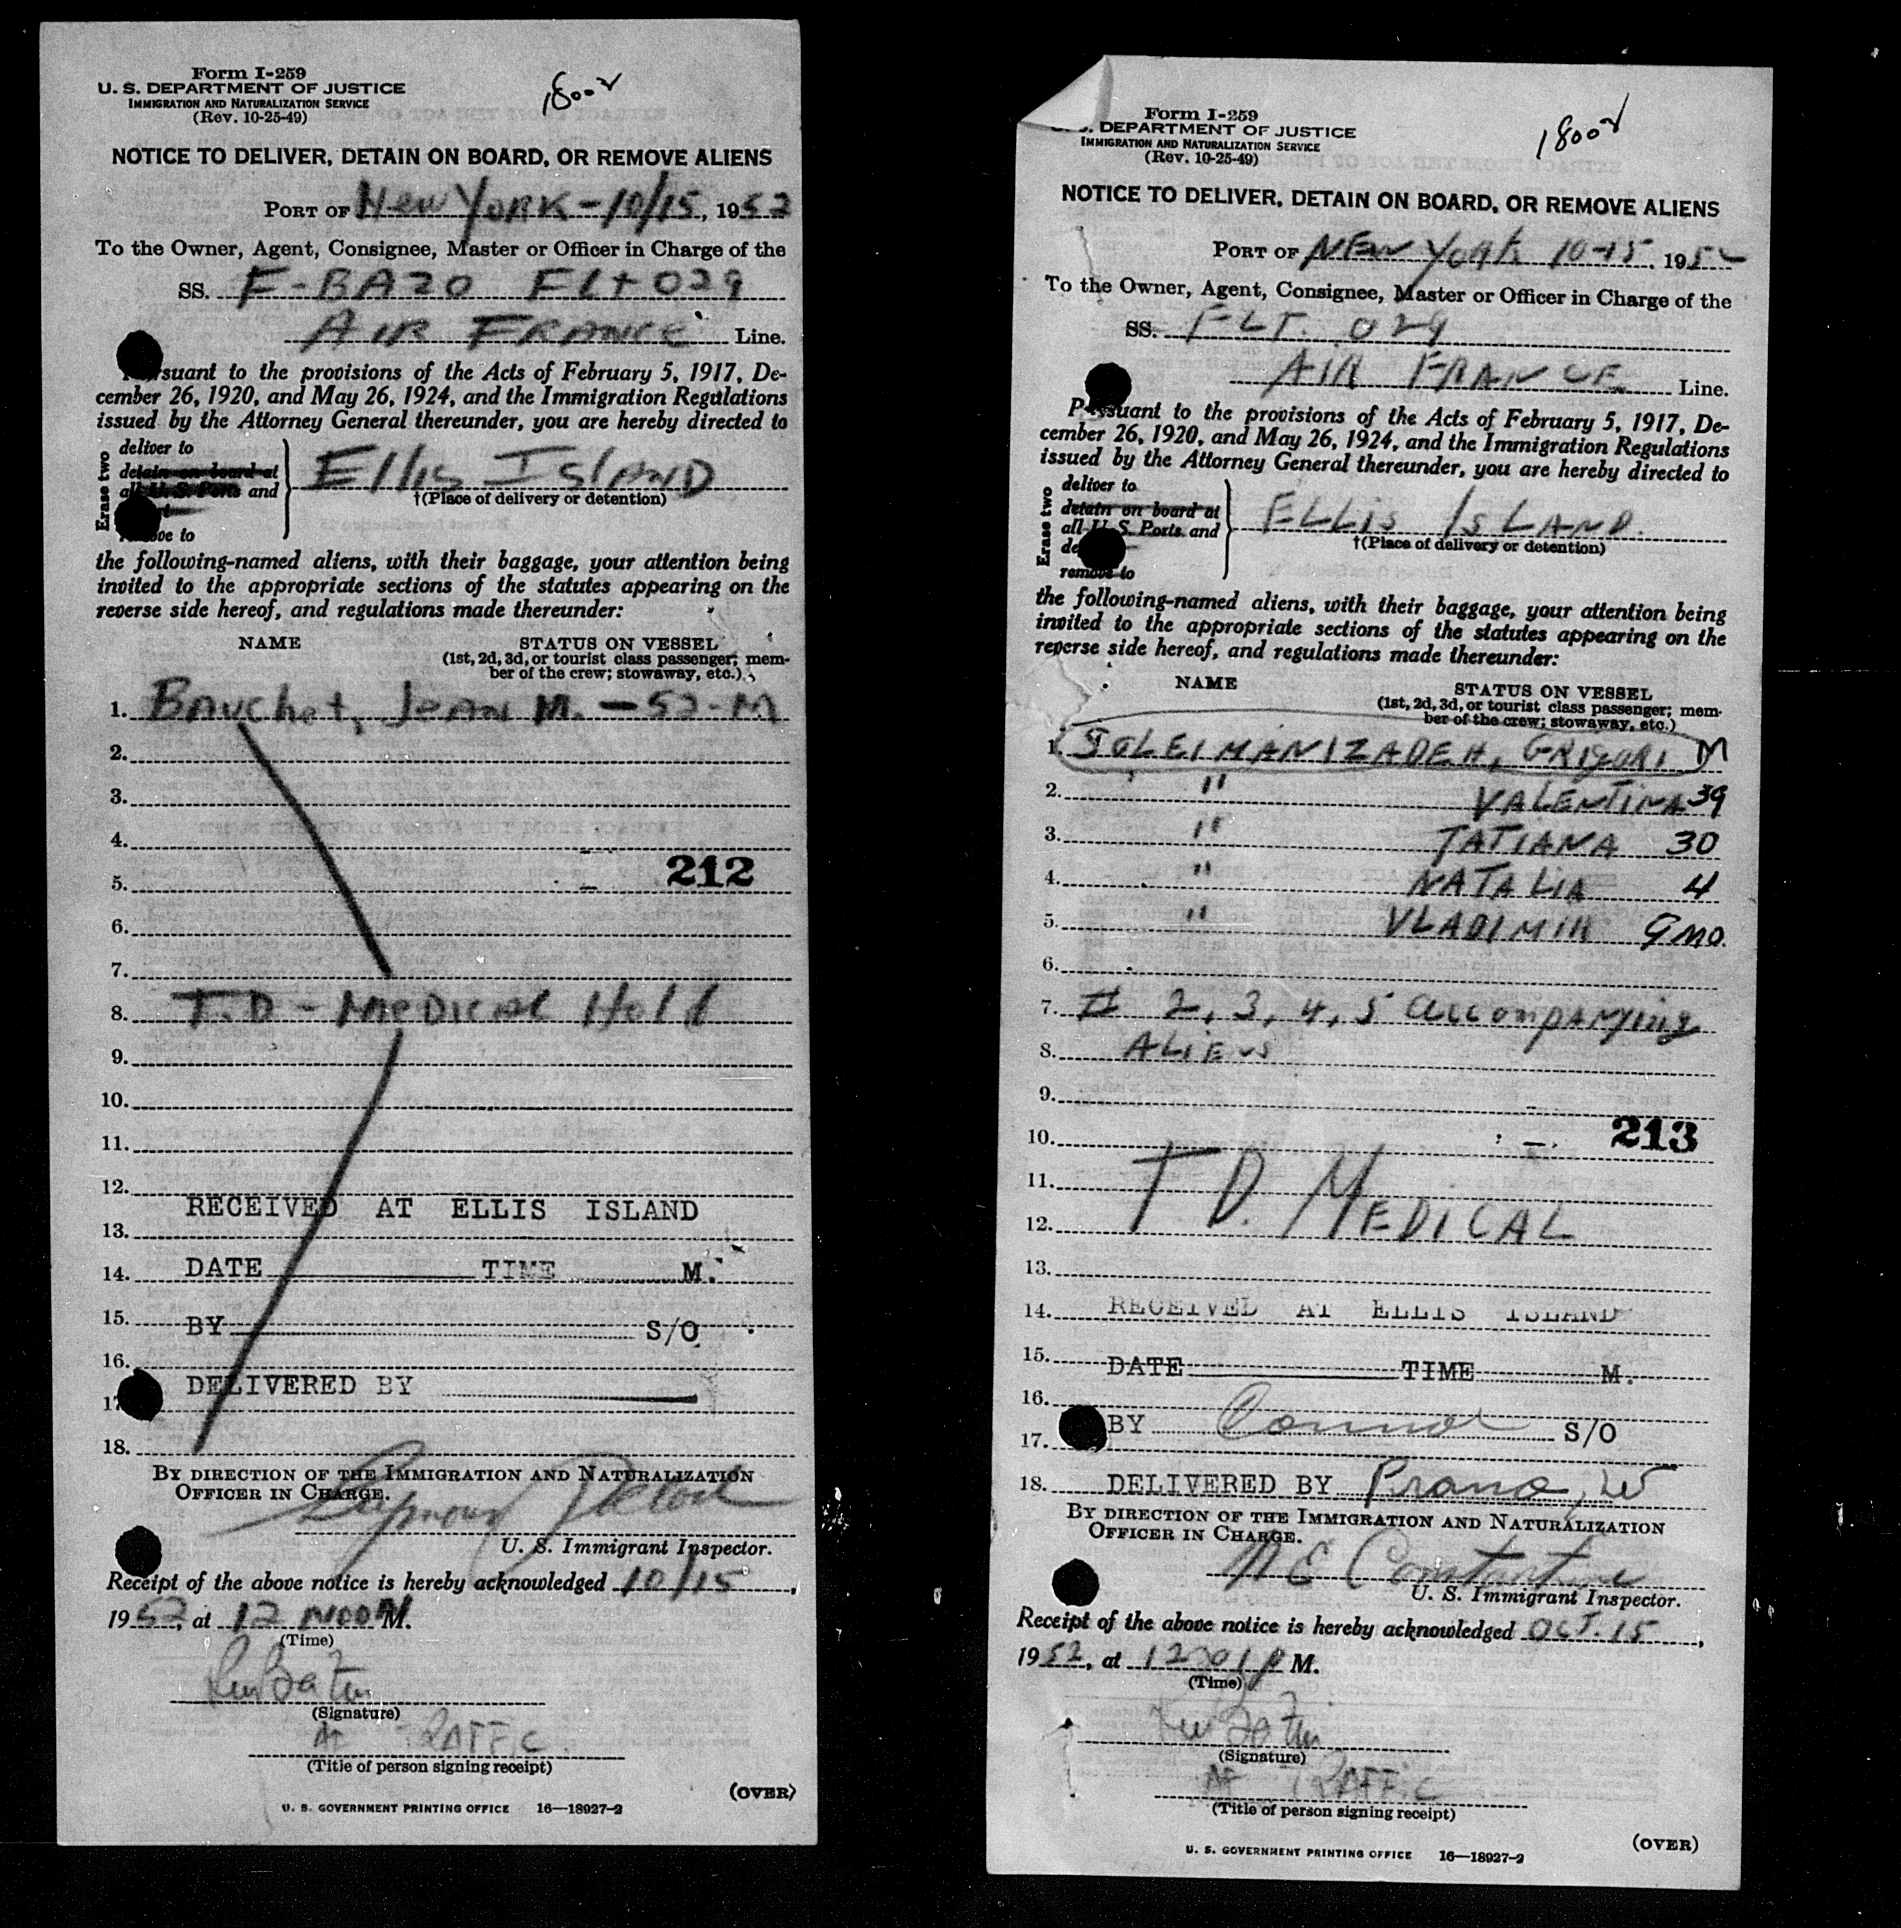 Form I-259
U. S. DEPARTMENT OF JUSTICE
IMMIGRATION AND NATURALIZATION SERVICE
(Rev. 10-25-49)
NOTICE TO DELIVER, DETAIN ON BOARD, OR REMOVE ALIENS
PORT OF New York - 10/15, 1952
To the Owner, Agent, Consignee, Master or Officer in Charge of the
SS. F-BAZO FLt 029
AIR FRANCE Line.
suant to the provisions of the Acts of February 5, 1917, De-
cember 26, 1920, and May 26, 1924, and the Immigration Regulations
issued by the Attorney General thereunder, you are hereby directed to
Erase two
deliver to
detain on board at
all U. S. Ports and
Ellis ISLAND
†(Place of delivery or detention)
the following-named aliens, with their baggage, your attention being
invited to the appropriate sections of the statutes appearing on the
reverse side hereof, and regulations made thereunder:
NAME STATUS ON VESSEL
(1st, 2d, 3d, or tourist class passenger; mem-
ber of the crew; stowaway, etc.)
1. Bauchet, Jean M. - 52-M
2.
3.
4.
212
5.
6.
7.
8. T.D - Medical Hold
9.
10.
11.
12.
RECEIVED AT ELLIS ISLAND
13.
14. DATE TIME M.
15. BY S/O
16.
17 DELIVERED BY
18.
BY DIRECTION OF THE IMMIGRATION AND NATURALIZATION
OFFICER IN CHARGE.
Seymour
U. S. Immigrant Inspector.
Receipt of the above notice is hereby acknowledged 10/15,
1952, at 12 NOON M.
(Time)
(Signature)
AF TRAFFIC
(Title of person signing receipt)
(OVER)
U. S. GOVERNMENT PRINTING OFFICE 16—18927-2
Form I-259
U. S. DEPARTMENT OF JUSTICE
IMMIGRATION AND NATURALIZATION SERVICE
(Rev. 10-25-49)
NOTICE TO DELIVER, DETAIN ON BOARD, OR REMOVE ALIENS
PORT OF NEW YORK 10-15, 1952
To the Owner, Agent, Consignee, Master or Officer in Charge of the
SS. FLT. 029
AIR FRANCE Line.
Pursuant to the provisions of the Acts of February 5, 1917, De-
cember 26, 1920, and May 26, 1924, and the Immigration Regulations
issued by the Attorney General thereunder, you are hereby directed to
Erase two
deliver to
detain on board at
all U. S. Ports and
de
remove to
ELLIS ISLAND.
†(Place of delivery or detention)
the following-named aliens, with their baggage, your attention being
invited to the appropriate sections of the statutes appearing on the
reverse side hereof, and regulations made thereunder:
NAME STATUS ON VESSEL
(1st, 2d, 3d, or tourist class passenger; mem-
ber of the crew; stowaway, etc.)
1. SOLEIMANIZADEH, GRIGORI M
2. " VALENTINA 39
3. " TATIANA 30
4. " NATALIA 4
5. " VLADIMIR 9 mo.
6.
7. # 2, 3, 4, 5 accompanying
8. ALIENS
9.
10. 213
11. T D. MEDICAL
12.
13.
14. RECEIVED AT ELLIS ISLAND
15. DATE TIME M.
16.
BY Connor S/O
17.
18. DELIVERED BY
BY DIRECTION OF THE IMMIGRATION AND NATURALIZATION
OFFICER IN CHARGE.
Constantine
U. S. Immigrant Inspector.
Receipt of the above notice is hereby acknowledged OCT. 15,
1952, at 1201 p M.
(Time)
(Signature)
AF TRAFFIC
(Title of person signing receipt)
(OVER)
U. S. GOVERNMENT PRINTING OFFICE 16—18927-2